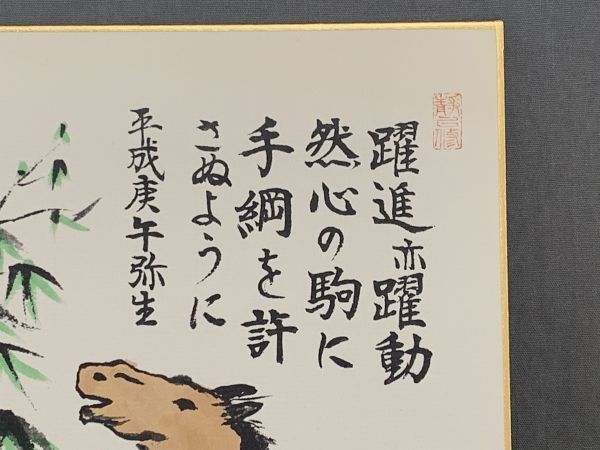 躍進亦躍動
然心の駒に
手綱を許
さぬように
平成庚午弥生